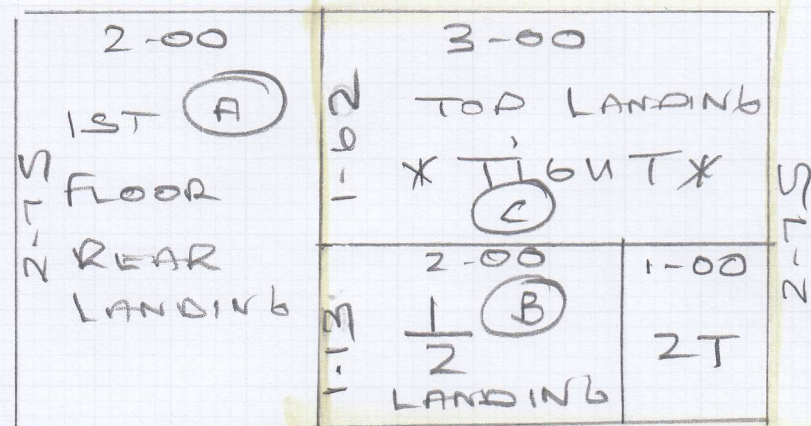 2-00
1ST A
FLOOR
REAR
LANDING
2-75
3-00
1-62
TOP LANDING
* TIGHT *
C
2-75
2-00
1-13
1/2 B
LANDING
1-00
2T